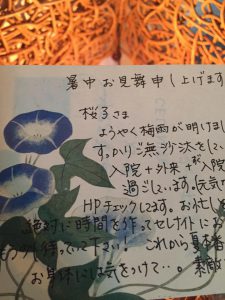 暑中お見舞申し上げます
桜子さま
ようやく梅雨が明けまし
すっかりご無沙汰をしてい
入院+外来+が入院
過ごしています。元気
HPチェックしてます。お忙し
絶対に時間を作ってセレナイトにお
もう少し待ってて下さい! これから夏本番
お身体には気をつけて・・。素敵